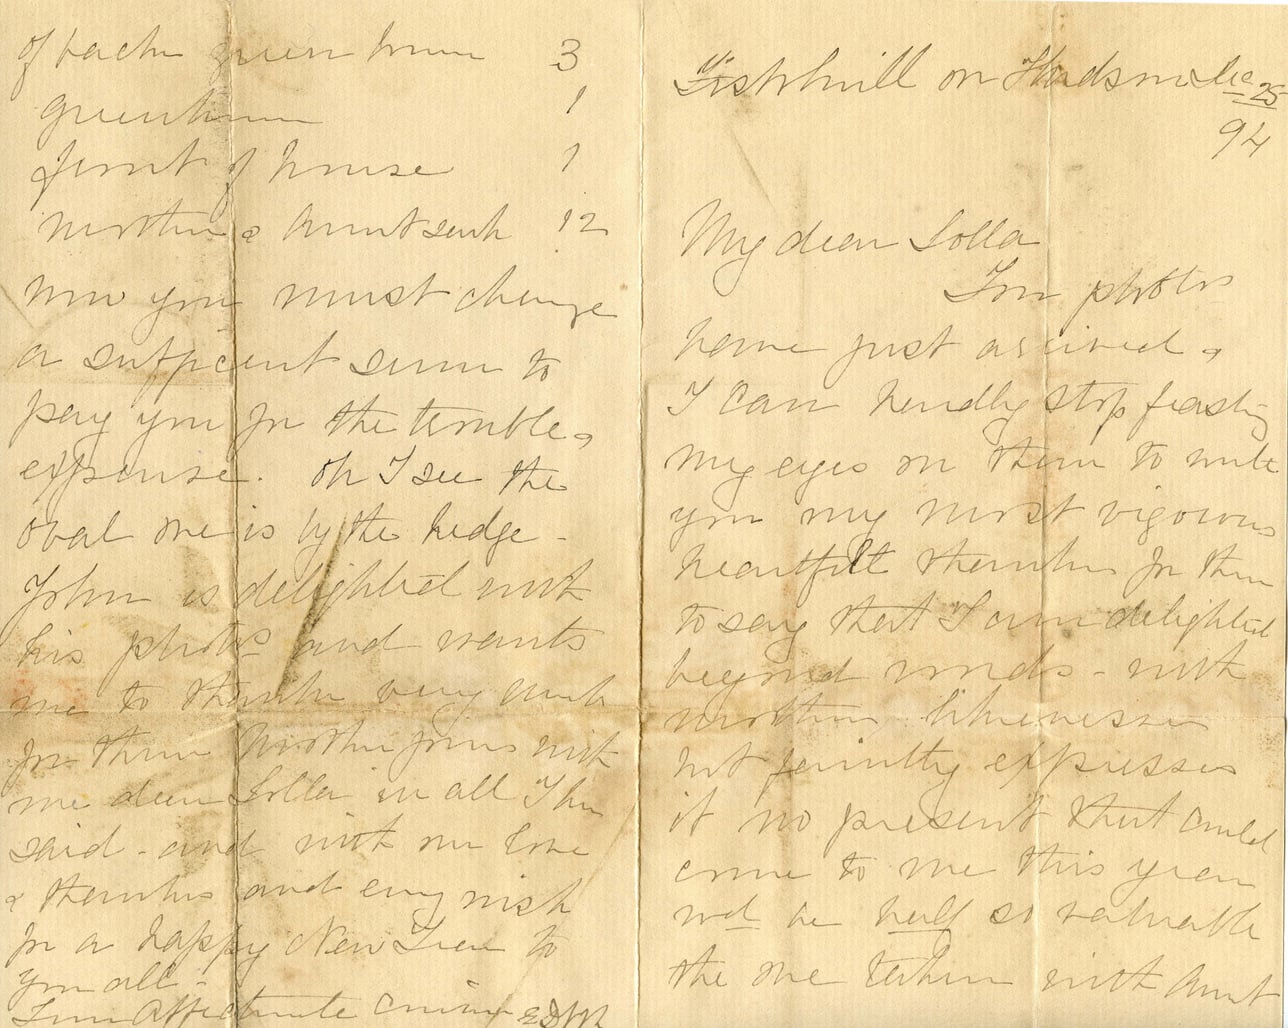 Fishkill on Hudson Dec 25
94
My dear Lolla
Your photos
have just arrived &
I can hardly stop feasting
my eyes on them to write
you my most vigorous
heartfelt thanks for them
to say that I am delighted
beyond words - with
mothers likenesses
not faintly expresses
it no present that could
come to me this year
wd be half so valuable
the one taken with Aunt
of back green house 3
greenhouse 1
front of house 1
mother & Aunt Sarah 12
now you must charge
a sufficient sum to
pay you for the trouble &
expense. Oh I see the
oval one is by the hedge -
John is delighted with
his photos and wants
me to thank very much
for them Mother joins with
me dear Lolla in all I hv
said - and with our love
& thanks and every wish
for a happy New Year to
you all -
Your affectionate cousin